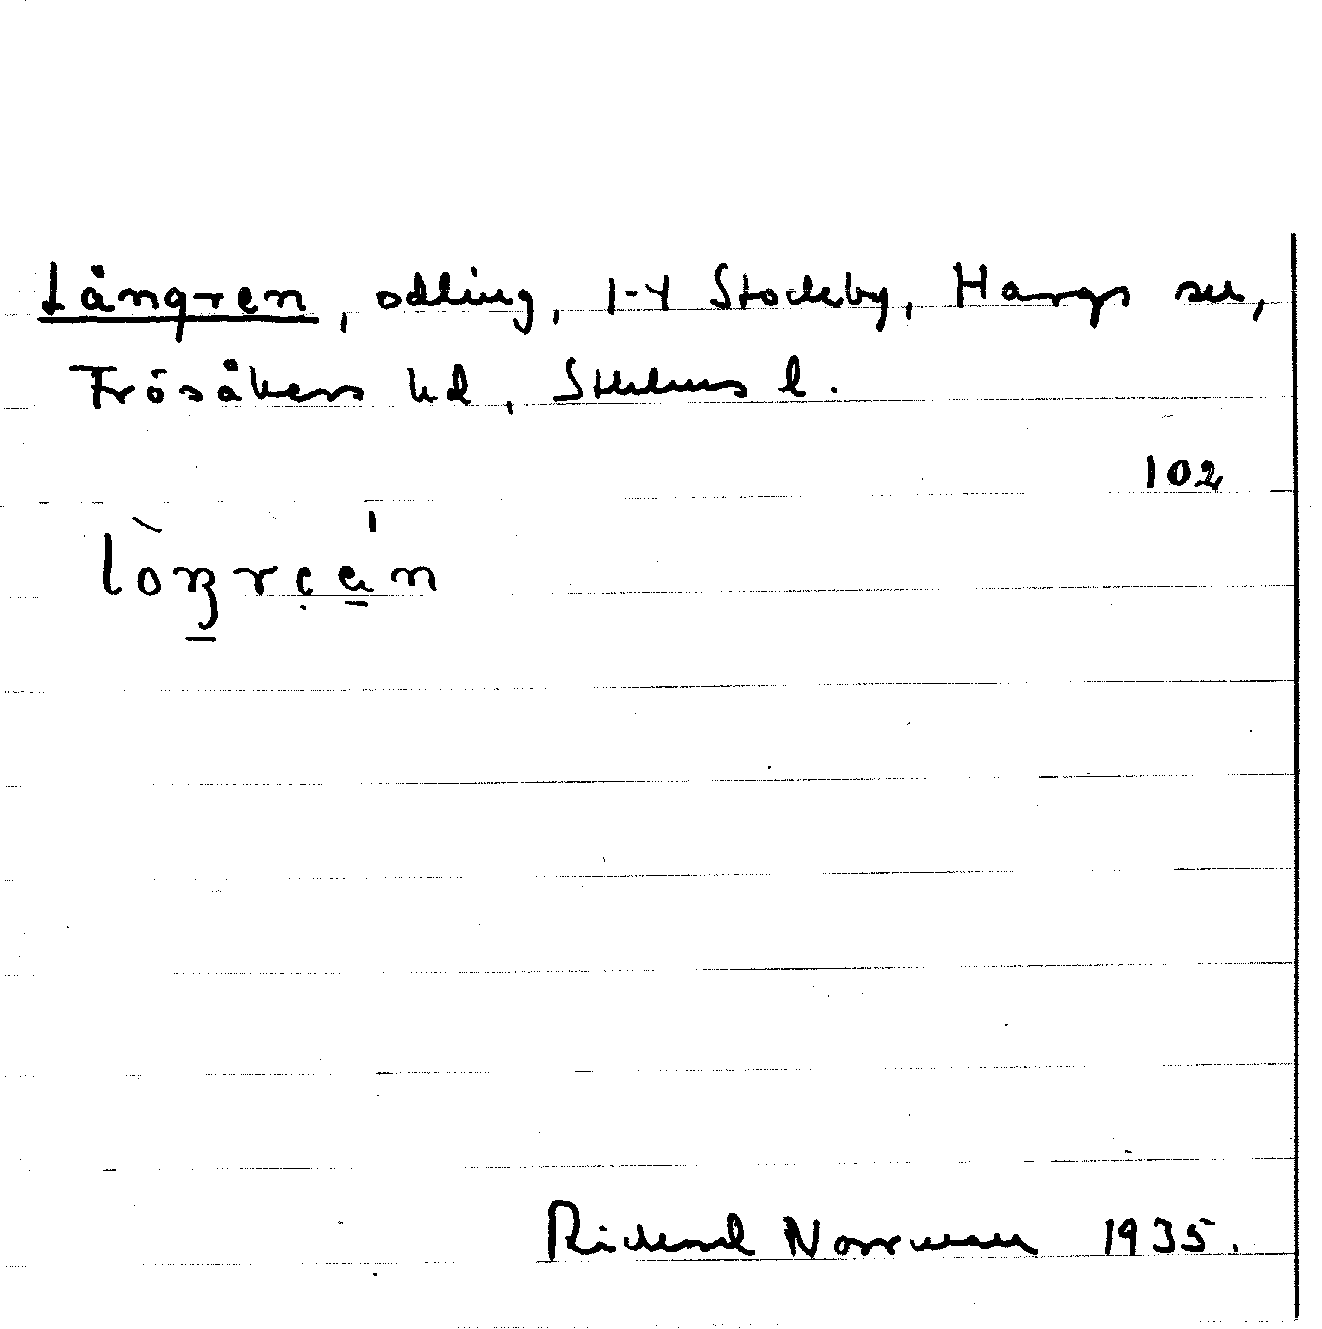 Långren, odling, 1-4 Stockby, Hargs sn,
Frösåkers hd, Sthlms l.
102
lòŋrẹa̱n
Richard Norrman 1935.